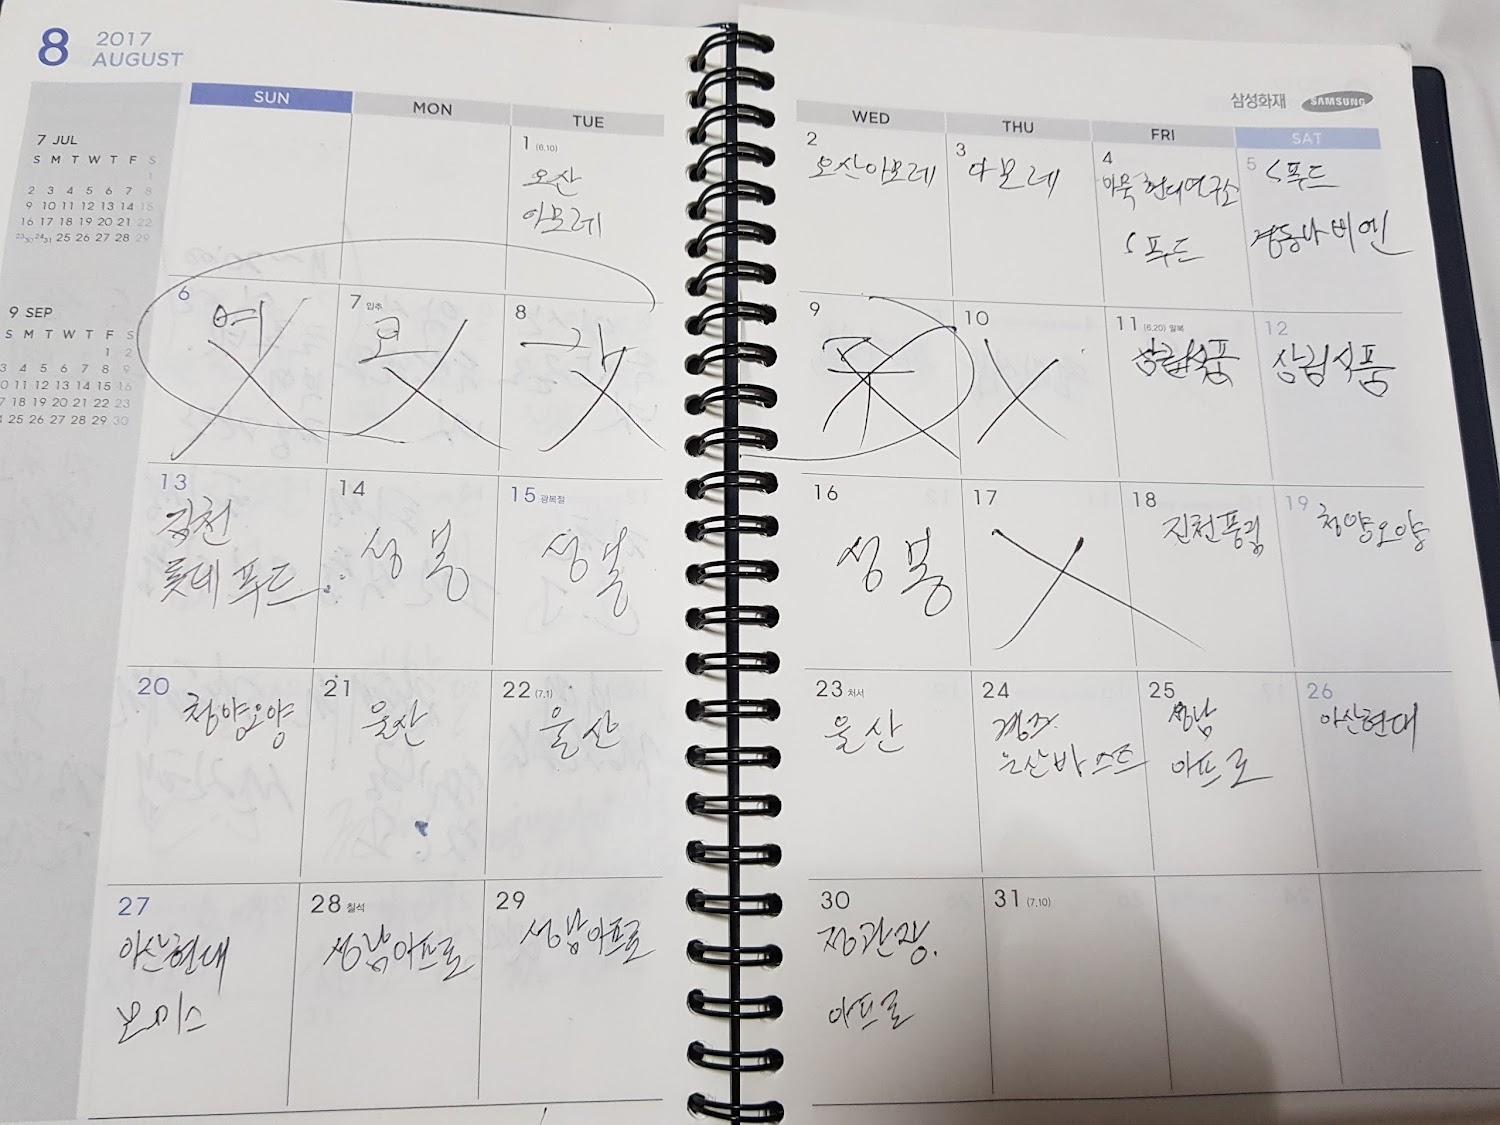 8 2017
AUGUST
삼성화재 SAMSUNG
7 JUL
S M T W T F S
1
2 3 4 5 6 7 8
9 10 11 12 13 14 15
16 17 18 19 20 21 22
23/30 24/31 25 26 27 28 29
9 SEP
S M T W T F S
1 2
3 4 5 6 7 8 9
10 11 12 13 14 15 16
17 18 19 20 21 22 23
24 25 26 27 28 29 30
SUN MON TUE WED THU FRI SAT
1 (6.10)
오산
아모레
2
오산아모레
3
아모레
4
현대연구소
S푸드
5
S푸드
경동나비엔
6
7 입추
8
9
10
11 (6.20) 말복
삼립식품
12
삼립식품
13
김천
롯데푸드
14
성봉
15 광복절
성봉
16
성봉
17
18
진천풍림
19
청양오양
20
청양오양
21
울산
22 (7.1)
울산
23 처서
울산
24
경주
25
성남
아프로
26
아산현대
27
아산현대
코미스
28 칠석
성남아프로
29
성남아프로
30
정관장.
아프로
31 (7.10)